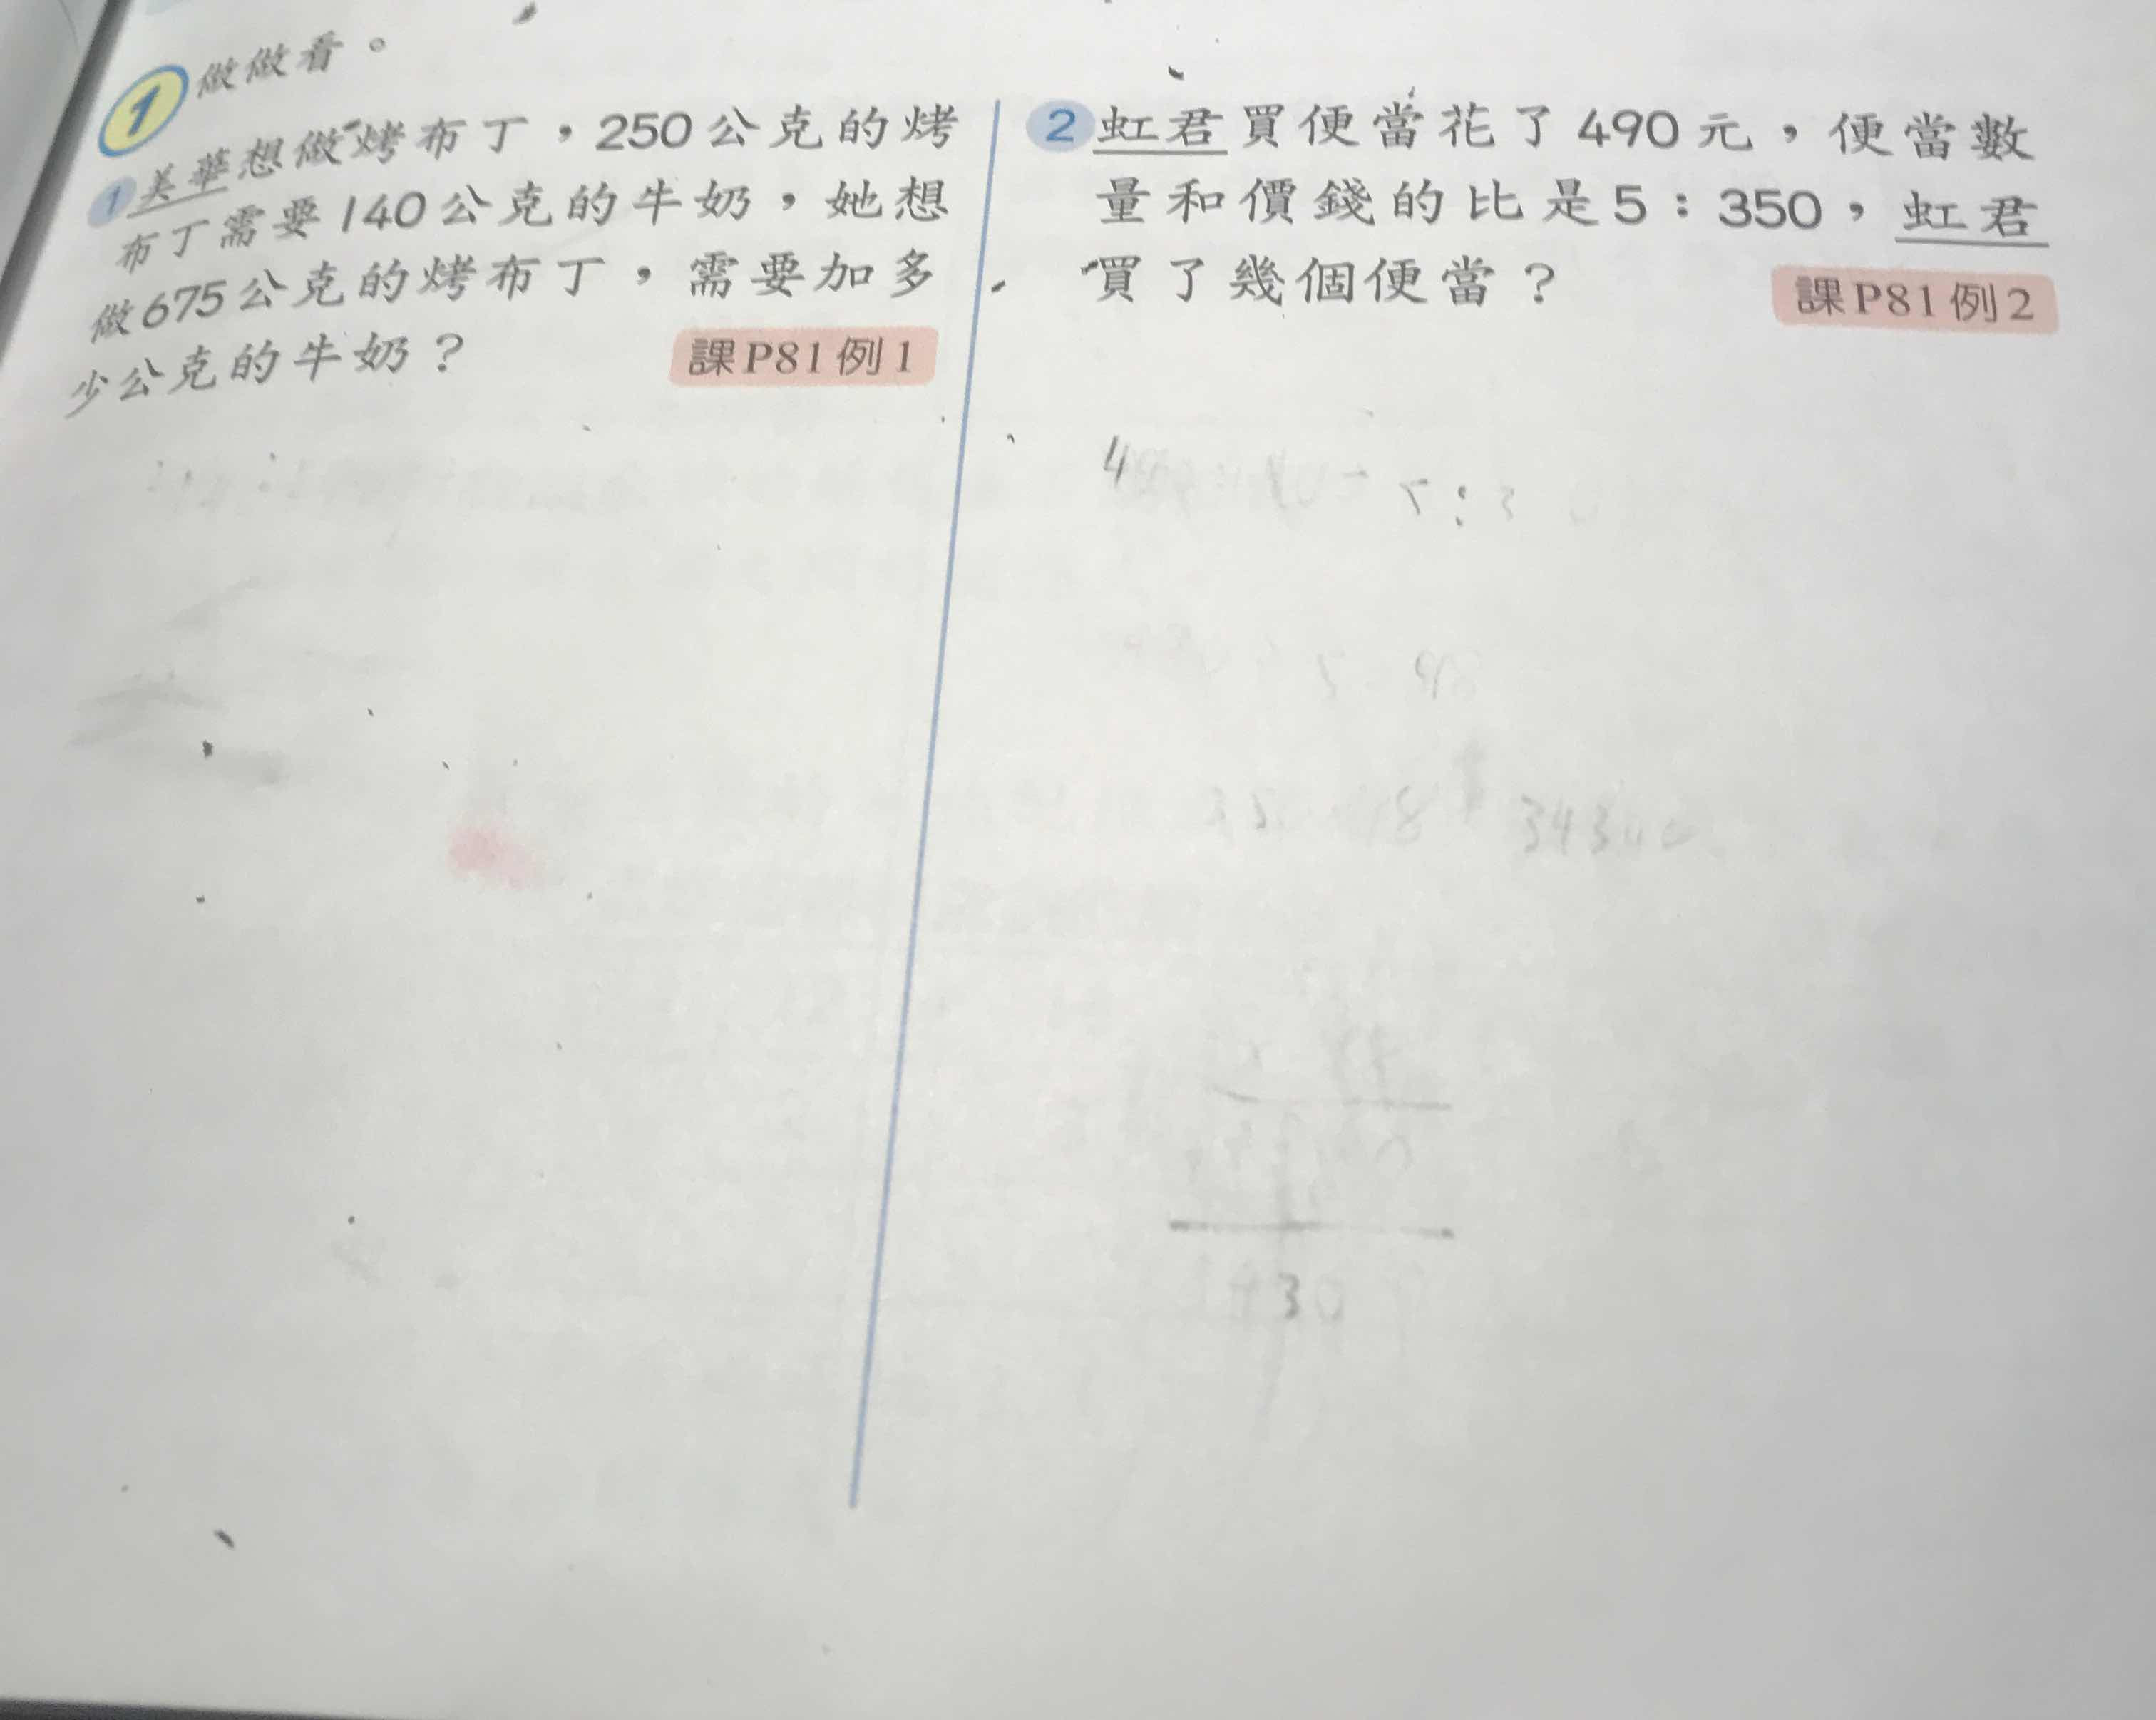 1 做做看。
1 美華想做烤布丁，250公克的烤
布丁需要140公克的牛奶，她想
做675公克的烤布丁，需要加多
少公克的牛奶？
課P81例1
2 虹君買便當花了490元，便當數
量和價錢的比是5：350，虹君
買了幾個便當？
課P81例2